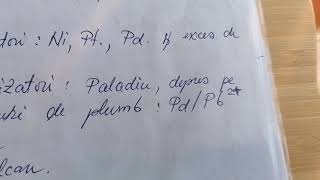 tori : Ni, Pt, Pd. și exces de
izatori : Paladiu, depus pe
uri de plumb : Pd/Pb²⁺
lcan.